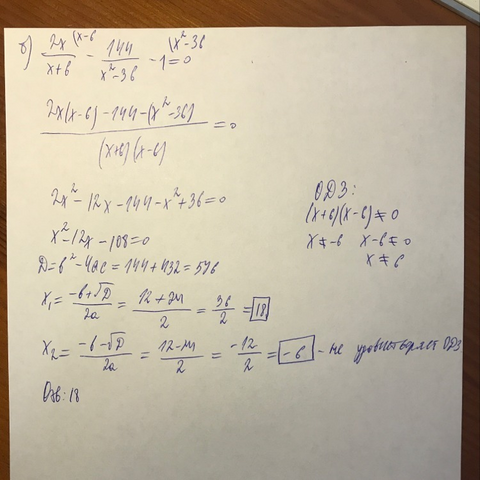 б) 2x (x-6 / x+6 - 144 / x²-36 - 1 (x²-36 = 0
2x(x-6) - 144 - (x²-36) / (x+6)(x-6) = 0
2x² - 12x - 144 - x² + 36 = 0
x² - 12x - 108 = 0
D = b² - 4ac = 144 + 432 = 576
x₁ = -b+√D / 2a = 12+24 / 2 = 36 / 2 = 18
x₂ = -b-√D / 2a = 12-24 / 2 = -12 / 2 = -6 - не удовлетворяет ОДЗ
Отв: 18
ОДЗ:
(x+6)(x-6) ≠ 0
x ≠ -6 x-6 ≠ 0
x ≠ 6